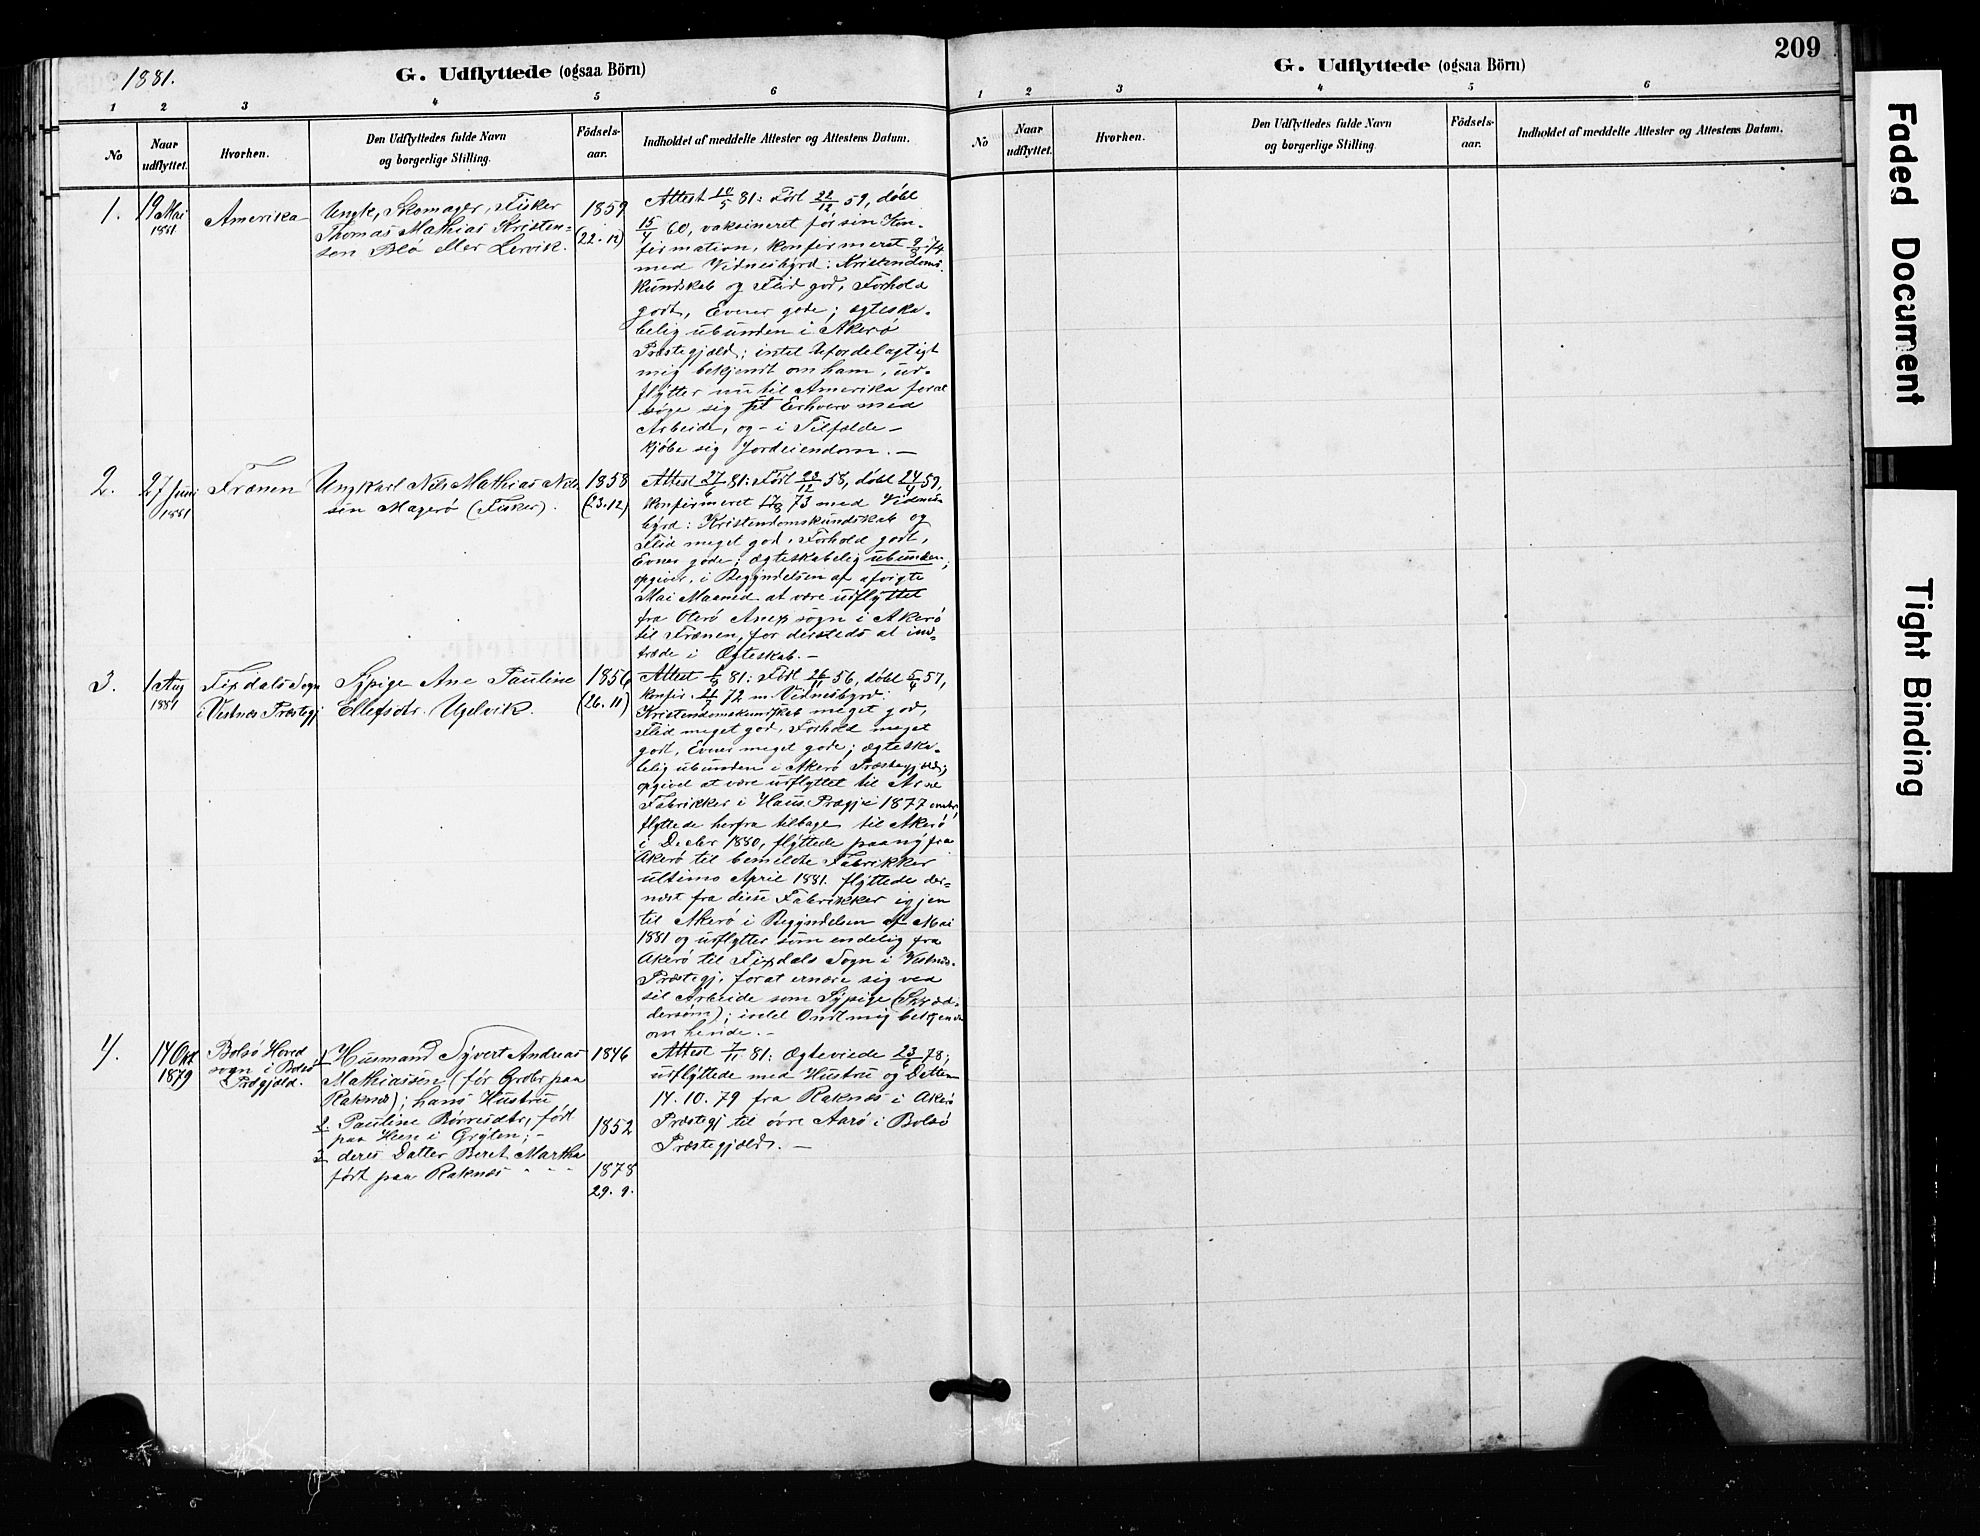 1881.
G. Udflyttede (ogsaa Börn)
1 2 3 4 5 6
No
Naar udflyttet.
Hvorhen.
Den Udflyttedes fulde Navn og borgerlige Stilling.
Födsels-aar.
Indholdet af meddelte Attester og Attestens Datum.
1.
19 Mai
1881
Amerika
Ungk., Skomager, Fisker
Thomas Mathias Kristen-
sen Blø eller Lervik.
1859
(22.12)
Attest 10/5 81: Født 22/12 59, døbt
15/4 60, vaksineret før sin Kon-
firmation, konfirmeret 74
med Vidnesbyrd: Kristendoms-
kundskab og Flid god, Forhold
godt, Evner gode; ægteska-
belig ubunden i Akerø
Præstegjæld; intet Ufordelagtigt
mig bekjendt om ham, ud-
flytter nu til Amerika forat
søge sig Erhverv med
Arbeide, og - i Tilfælde -
kjøbe sig Jordeiendom. -
2.
27 Juni
1881
Frænen
Ungkarl Nils Mathias Nils-
sen Magerø (Fisker).
1858
(23.12)
Attest 27/6 81: Født 23/12 58, døbt 24/4 59,
konfirmeret 73 med Vidnes-
byrd: Kristendomskundskab og
Flid meget god, Forhold godt,
Evner gode; ægteskabelig ubunden;
opgiver, i Begyndelsen af afvigte
Mai Maaned at være udflyttet
fra Oterø Anexsogn i Akerø
til Frænen, for dersteds at ind-
træde i Ægteskab. -
3.
1 Aug
1881
Fixdals Sogn
i Vestnes Præstegj
Sypige Ane Pauline
Ellefsdtr. Ugelvik.
1856
(26.11)
Attest 1/8 81: Født 26/11 56, døbt 5/4 57,
konfir. 72 m. Vidnesbyrd:
Kristendomskundskab meget god,
Flid meget god, Forhold meget
godt, Evner meget gode; ægteska-
belig ubunden i Akerø Præstegjæld;
opgivet at være udflyttet til Arne
Fabrikker i Haus Prægj i 1877
flyttede herfra tilbage til Akerø
i Decbr 1880, flyttede paany fra
Akerø til bemeldte Fabrikker
ultimo April 1881. flyttede der-
næst fra disse Fabrikker igjen
til Akerø i Begyndelsen af Mai
1881 og udflytter som endelig fra
Akerø til Fixdals Sogn i Vestnes
Præstegj. forat ernære sig ved
sit Arbeide som Sypige (Skræd-
dersøm); intet Ondt mig bekjendt
om hende. -
4.
14 Okt
1879
Bolsø Hoved
sogn i Bolsø
Prægjæld.
1 Husmand Syvert Andreas
Mathiassen (før Grdbr paa
Raknes); hans Hustru
2 Pauline Børresdtr, født
paa Heen i Gryten; -
3 deres Datter Beret Martha
født paa Raknes
1846
1852
1878
29.9.
Attest 7/11 81: Ægteviede 23/6 78;
udflyttede med Hustru og Datter
14.10.79 fra Raknes i Akerø
Præstegj til øvre Aarø i Bolsø
Præstegjæld. -
G. Udflyttede (ogsaa Börn)
209
1 2 3 4 5 6
No
Naar udflyttet.
Hvorhen.
Den Udflyttedes fulde Navn og borgerlige Stilling.
Födsels-aar.
Indholdet af meddelte Attester og Attestens Datum.
Faded Document
Tight Binding